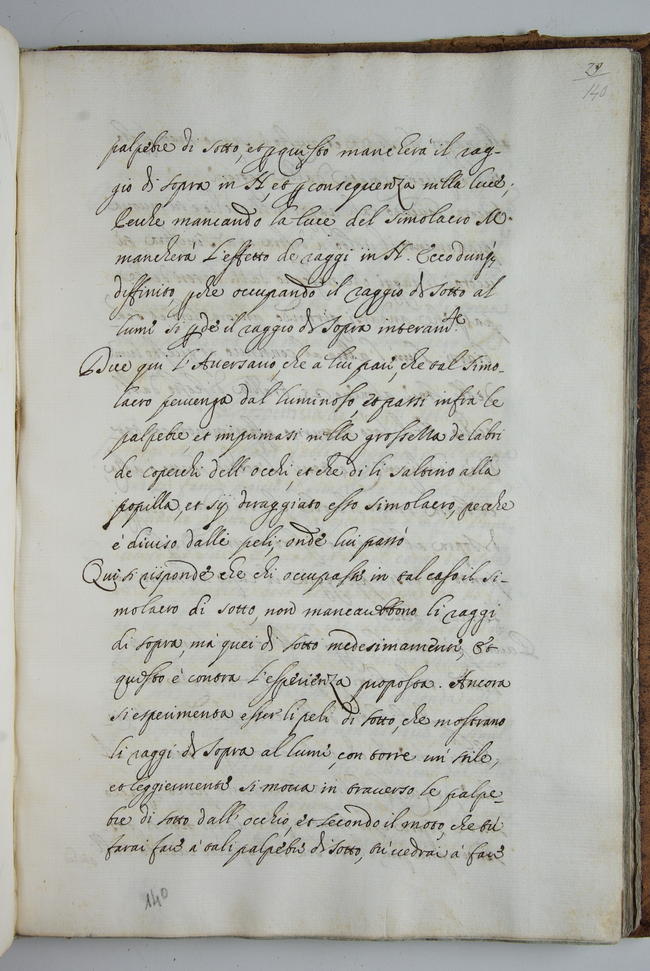 29
140
palpebre di sotto, et questo mancherà il rag-
gio di sopra in H, et conseguenza nella luce;
Perche mancando la luce del simolacro M.
mancherà l'effetto de raggi in H. Ecco dunq,
diffinito, che occupando il raggio di sotto al
lume si pde il raggio di sopra interam.te
Dice qui l'Aversario, che a lui pare, che tal simo-
lacro pervenga dal luminoso, et passi infra le
palpebre, et imprimasi nella grossezza de labri
de coperchi dell'occhi, et che di li saltino alla
popilla, et sij diraggiato esso simolacro, perche
è diviso dalli peli, onde lui passò
Qui si risponde che chi occupasse in tal caso il si-
molacro di sotto, non mancarebbono li raggi
di sopra, ma quei di sotto medesimamente, et
questo è contra l'esperienza proposta. Ancora
si esperimenta esser li peli di sotto, che mostrano
li raggi di sopra al lume, con torre un stile,
et leggiermente si mova in traverso le palpe-
bre di sotto dall'occhio, et secondo il moto, che tù
farai fare à tali palpebre di sotto, tù vedrai à fare
140